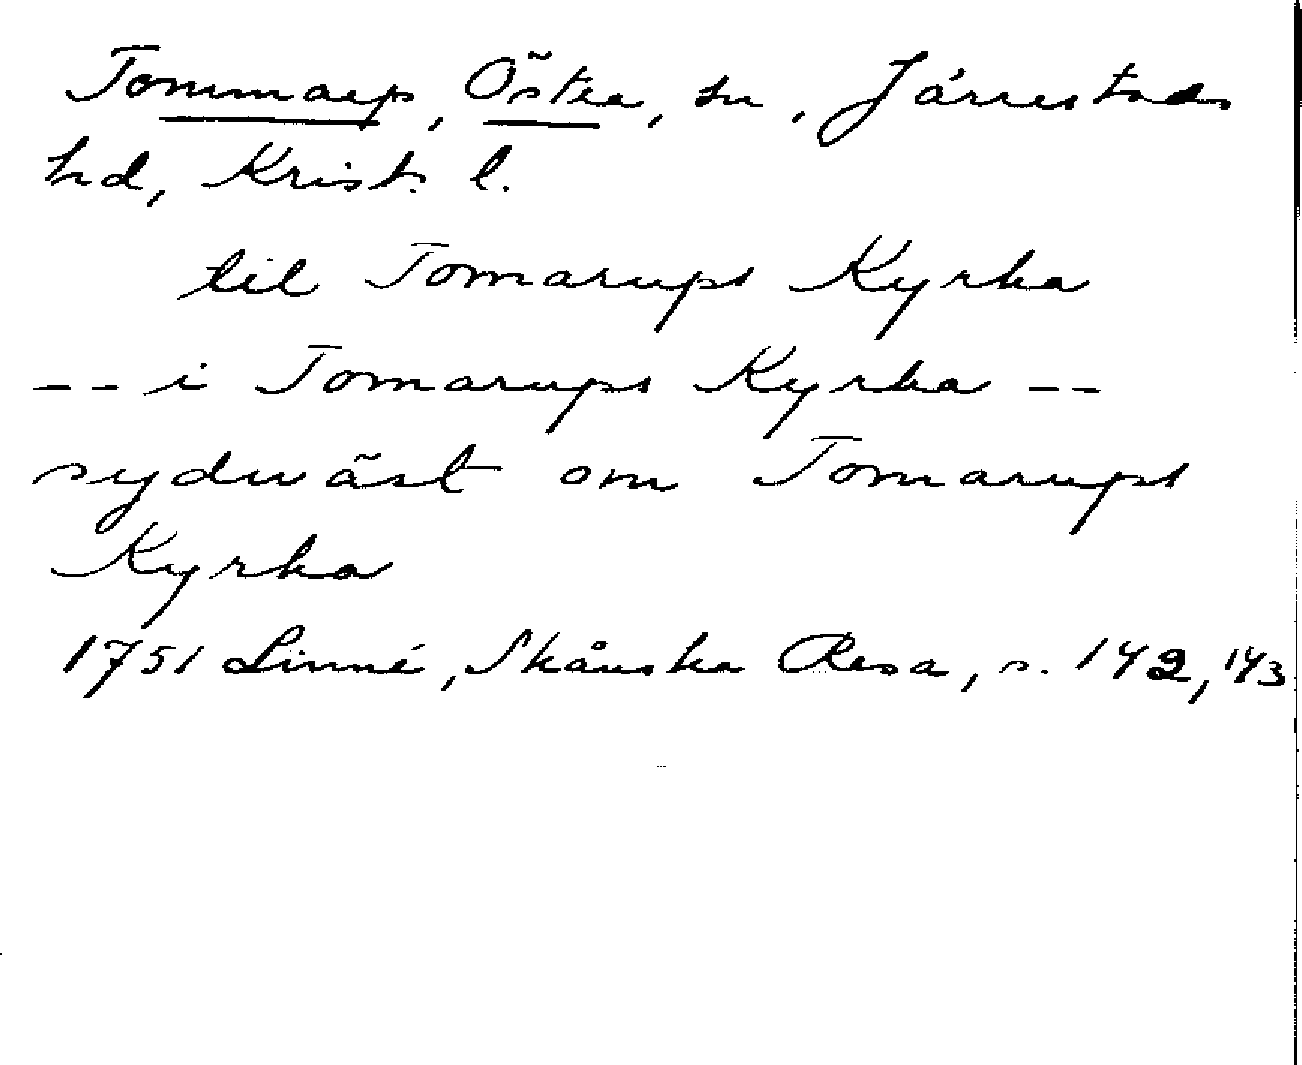 Tommarp, Östra, sn, Järrestads
hd, Krist. l.
til Tomarups Kyrka
-- i Tomarups Kyrka --
sydwäst om Tomarups
Kyrka
1751 Linné, Skånska Resa, s. 142, 143